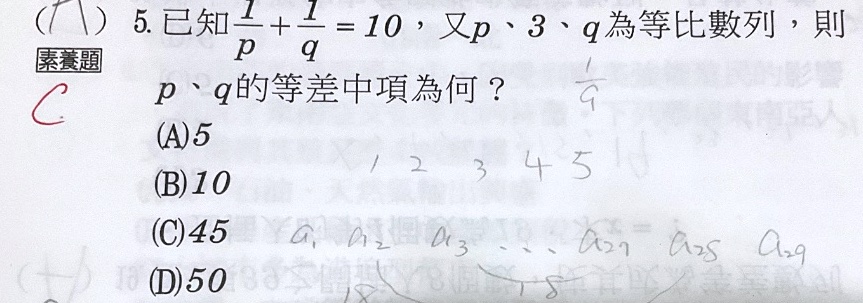 (A) 5. 已知 1/p + 1/q = 10，又p、3、q為等比數列，則
素養題
C
p、q的等差中項為何？
1/9
(A)5
1 2 3 4 5
(B)10
(C)45 a₁ a₂ a₃ ... a₂₇ a₂₈ a₂₉
(D)50 18 18